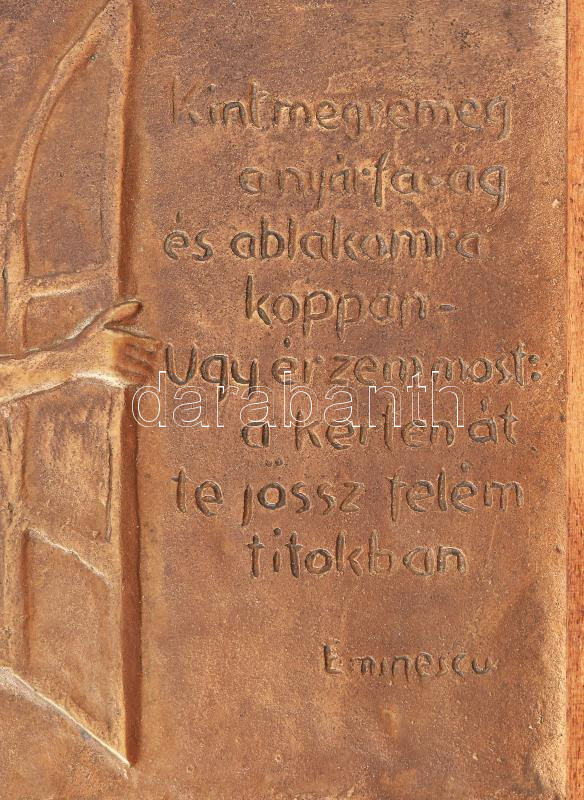 Kint megremeg
a nyárfa-ág
és ablakomra
koppan -
Ugy érzem most:
darabanth
a kerten át
te jössz felém
titokban
Eminescu